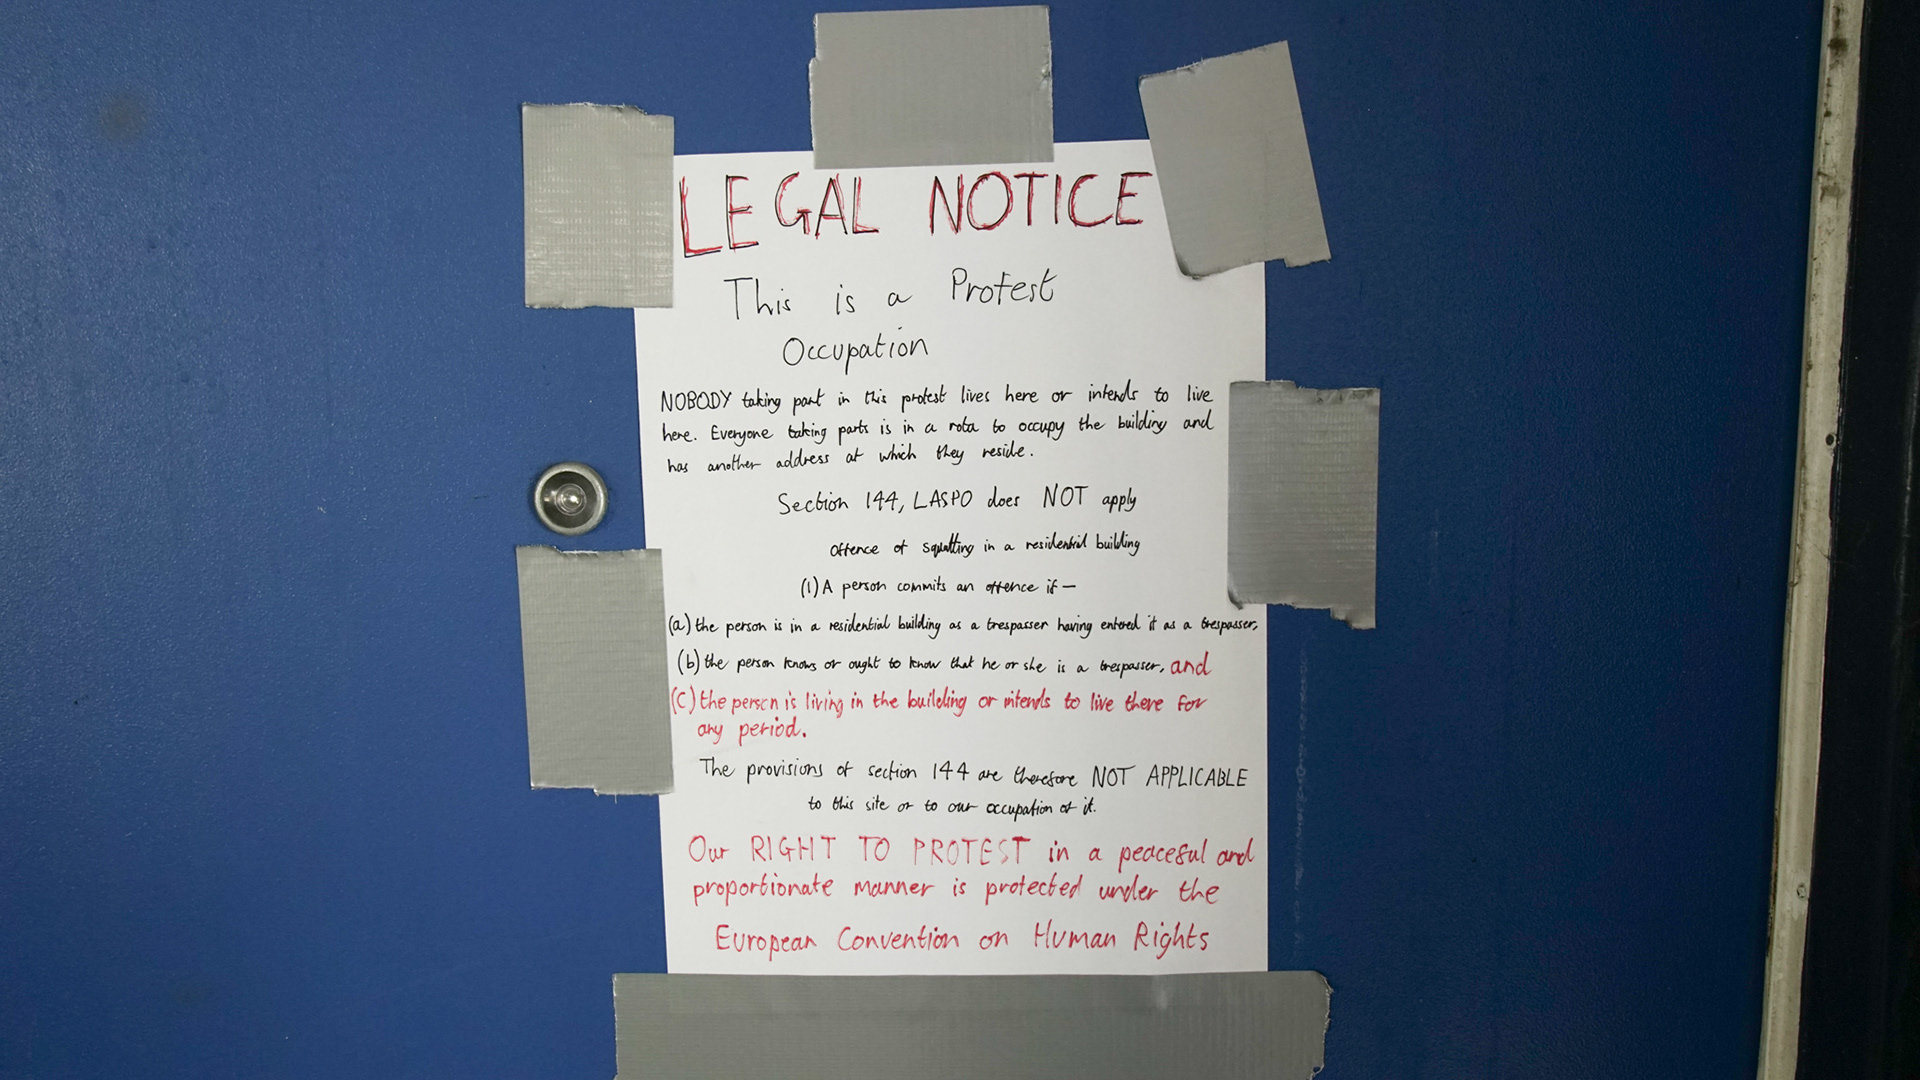 LEGAL NOTICE
This is a Protest
Occupation
NOBODY taking part in this protest lives here or intends to live
here. Everyone taking parts is in a rota to occupy the building and
has another address at which they reside.
Section 144, LASPO does NOT apply
Offence of squatting in a residential building
(1) A person commits an offence if—
(a) the person is in a residential building as a trespasser having entered it as a trespasser,
(b) the person knows or ought to know that he or she is a trespasser, and
(C) the person is living in the building or intends to live there for
any period.
The provisions of section 144 are therefore NOT APPLICABLE
to this site or to our occupation of it.
Our RIGHT TO PROTEST in a peaceful and
proportionate manner is protected under the
European Convention on Human Rights